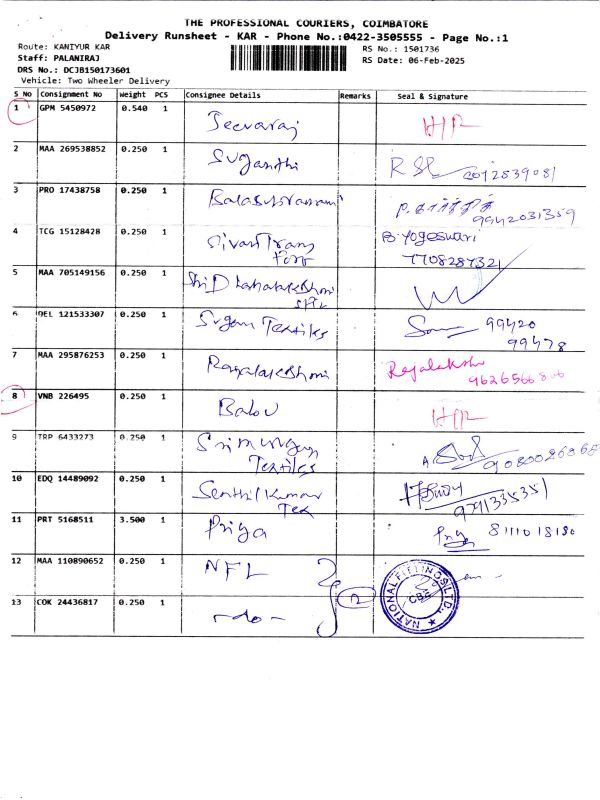 THE PROFESSIONAL COURIERS, COIMBATORE
Delivery Runsheet - KAR - Phone No.:0422-3505555 - Page No.:1
Route: KANIYUR KAR
RS No.: 1501736
Staff: PALANIRAJ
RS Date: 06-Feb-2025
DRS No.: DCJ8150173601
Vehicle: Two Wheeler Delivery
S No Consignment No Weight PCS Consignee Details Remarks Seal & Signature
1 GPM 5450972 0.540 1 Jeevaraj
2 MAA 269538852 0.250 1 Suganthi
3 PRO 17438758 0.250 1
9942031359
4 TCG 15128428 0.250 1 B. Yogeswari
7708287321
5 MAA 705149156 0.250 1
6 DEL 121533307 0.250 1 Sugan Textiles 99420
99478
7 MAA 295876253 0.250 1 Rajalakshmi
8 VNB 226495 0.250 1 Balu
9 TRP 6433273 0.250 1 Textiles
10 EDQ 14489092 0.250 1 Senthil Kumar
Tex
9791335351
11 PRT 5168511 3.500 1 Priya
12 MAA 110890652 0.250 1 NFL
13 COK 24436817 0.250 1 -do-
NATIONAL FITTINGS LTD. CBE